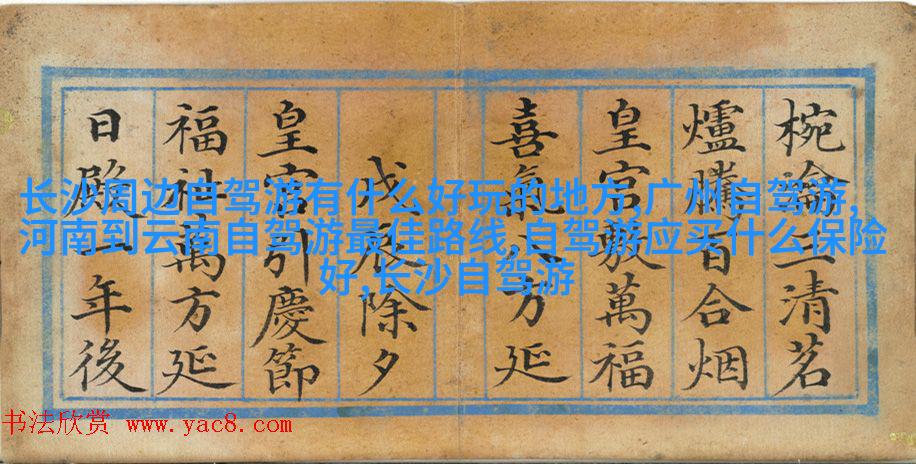 椀瀹三清茗
爐騰百合烟
皇宫敷萬福
喜氣八方延
戊辰除夕
皇宫引慶節
福祉萬方延
日殿一年後
长沙周边自驾游有什么好玩的地方,广州自驾游,
河南到云南自驾游最佳路线,自驾游应买什么保险
好,长沙自驾游
书法欣赏 www.yac8.com